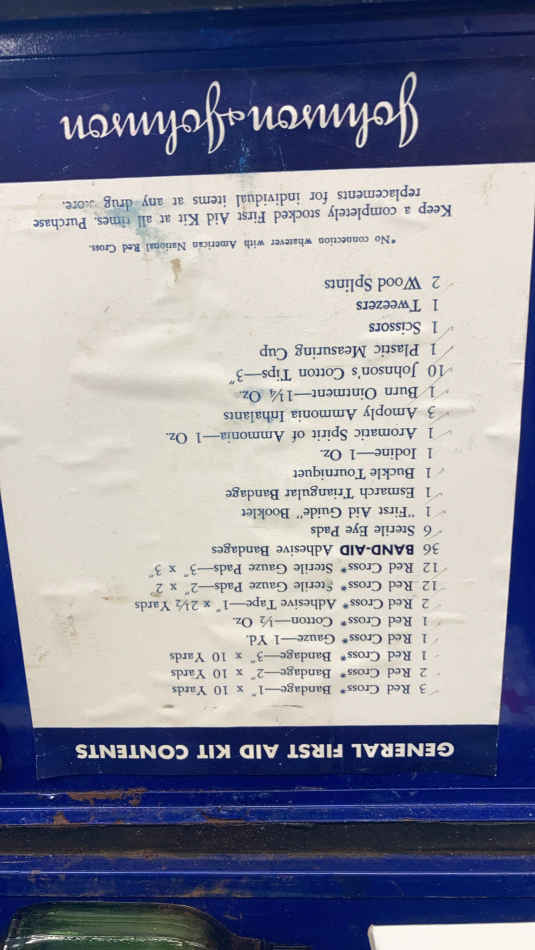 GENERAL FIRST AID KIT CONTENTS
3 Red Cross* Bandage—1" x 10 Yards
2 Red Cross* Bandage—2" x 10 Yards
1 Red Cross* Bandage—3" x 10 Yards
1 Red Cross* Gauze—1 Yd.
1 Red Cross* Cotton—½ Oz.
2 Red Cross* Adhesive Tape—1" x 2½ Yards
12 Red Cross* Sterile Gauze Pads—2" x 2"
12 Red Cross* Sterile Gauze Pads—3" x 3"
36 BAND-AID Adhesive Bandages
6 Sterile Eye Pads
1 "First Aid Guide" Booklet
1 Esmarch Triangular Bandage
1 Buckle Tourniquet
1 Iodine—1 Oz.
1 Aromatic Spirit of Ammonia—1 Oz.
3 Amoply Ammonia Inhalants
1 Burn Ointment—1¼ Oz.
10 Johnson's Cotton Tips—3"
1 Plastic Measuring Cup
1 Scissors
1 Tweezers
2 Wood Splints
*No connection whatever with American National Red Cross.
Keep a completely stocked First Aid Kit at all times. Purchase
replacements for individual items at any drug store.
Johnson & Johnson